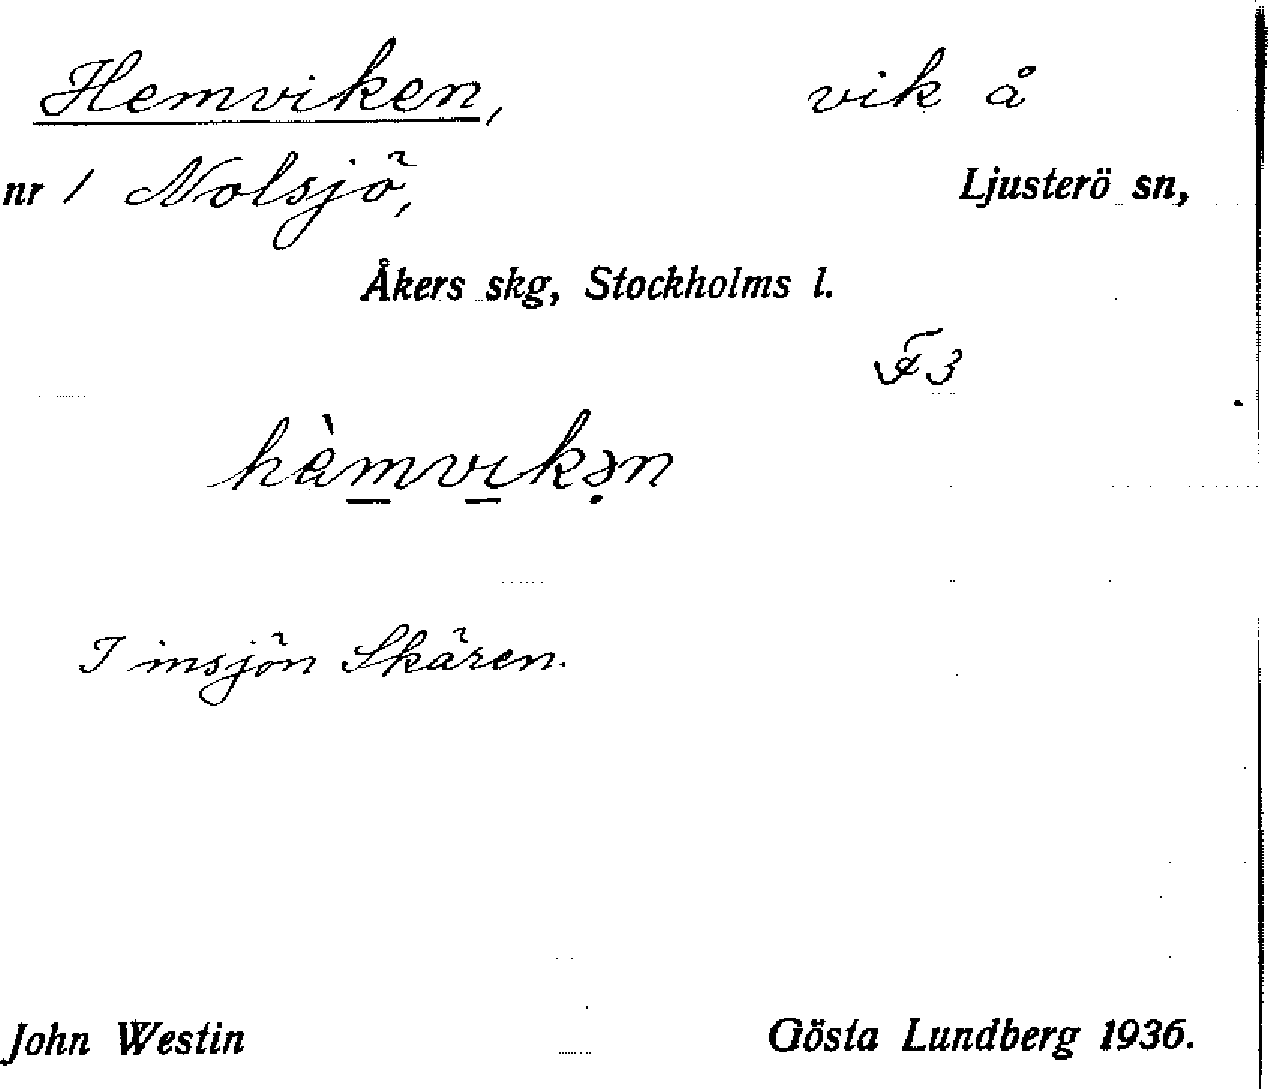 Hemviken, vik å
nr 1 Nolsjö, Ljusterö sn,
Åkers skg, Stockholms l.
F3
hèmvikən
I insjön Skären.
John Westin Gösta Lundberg 1936.